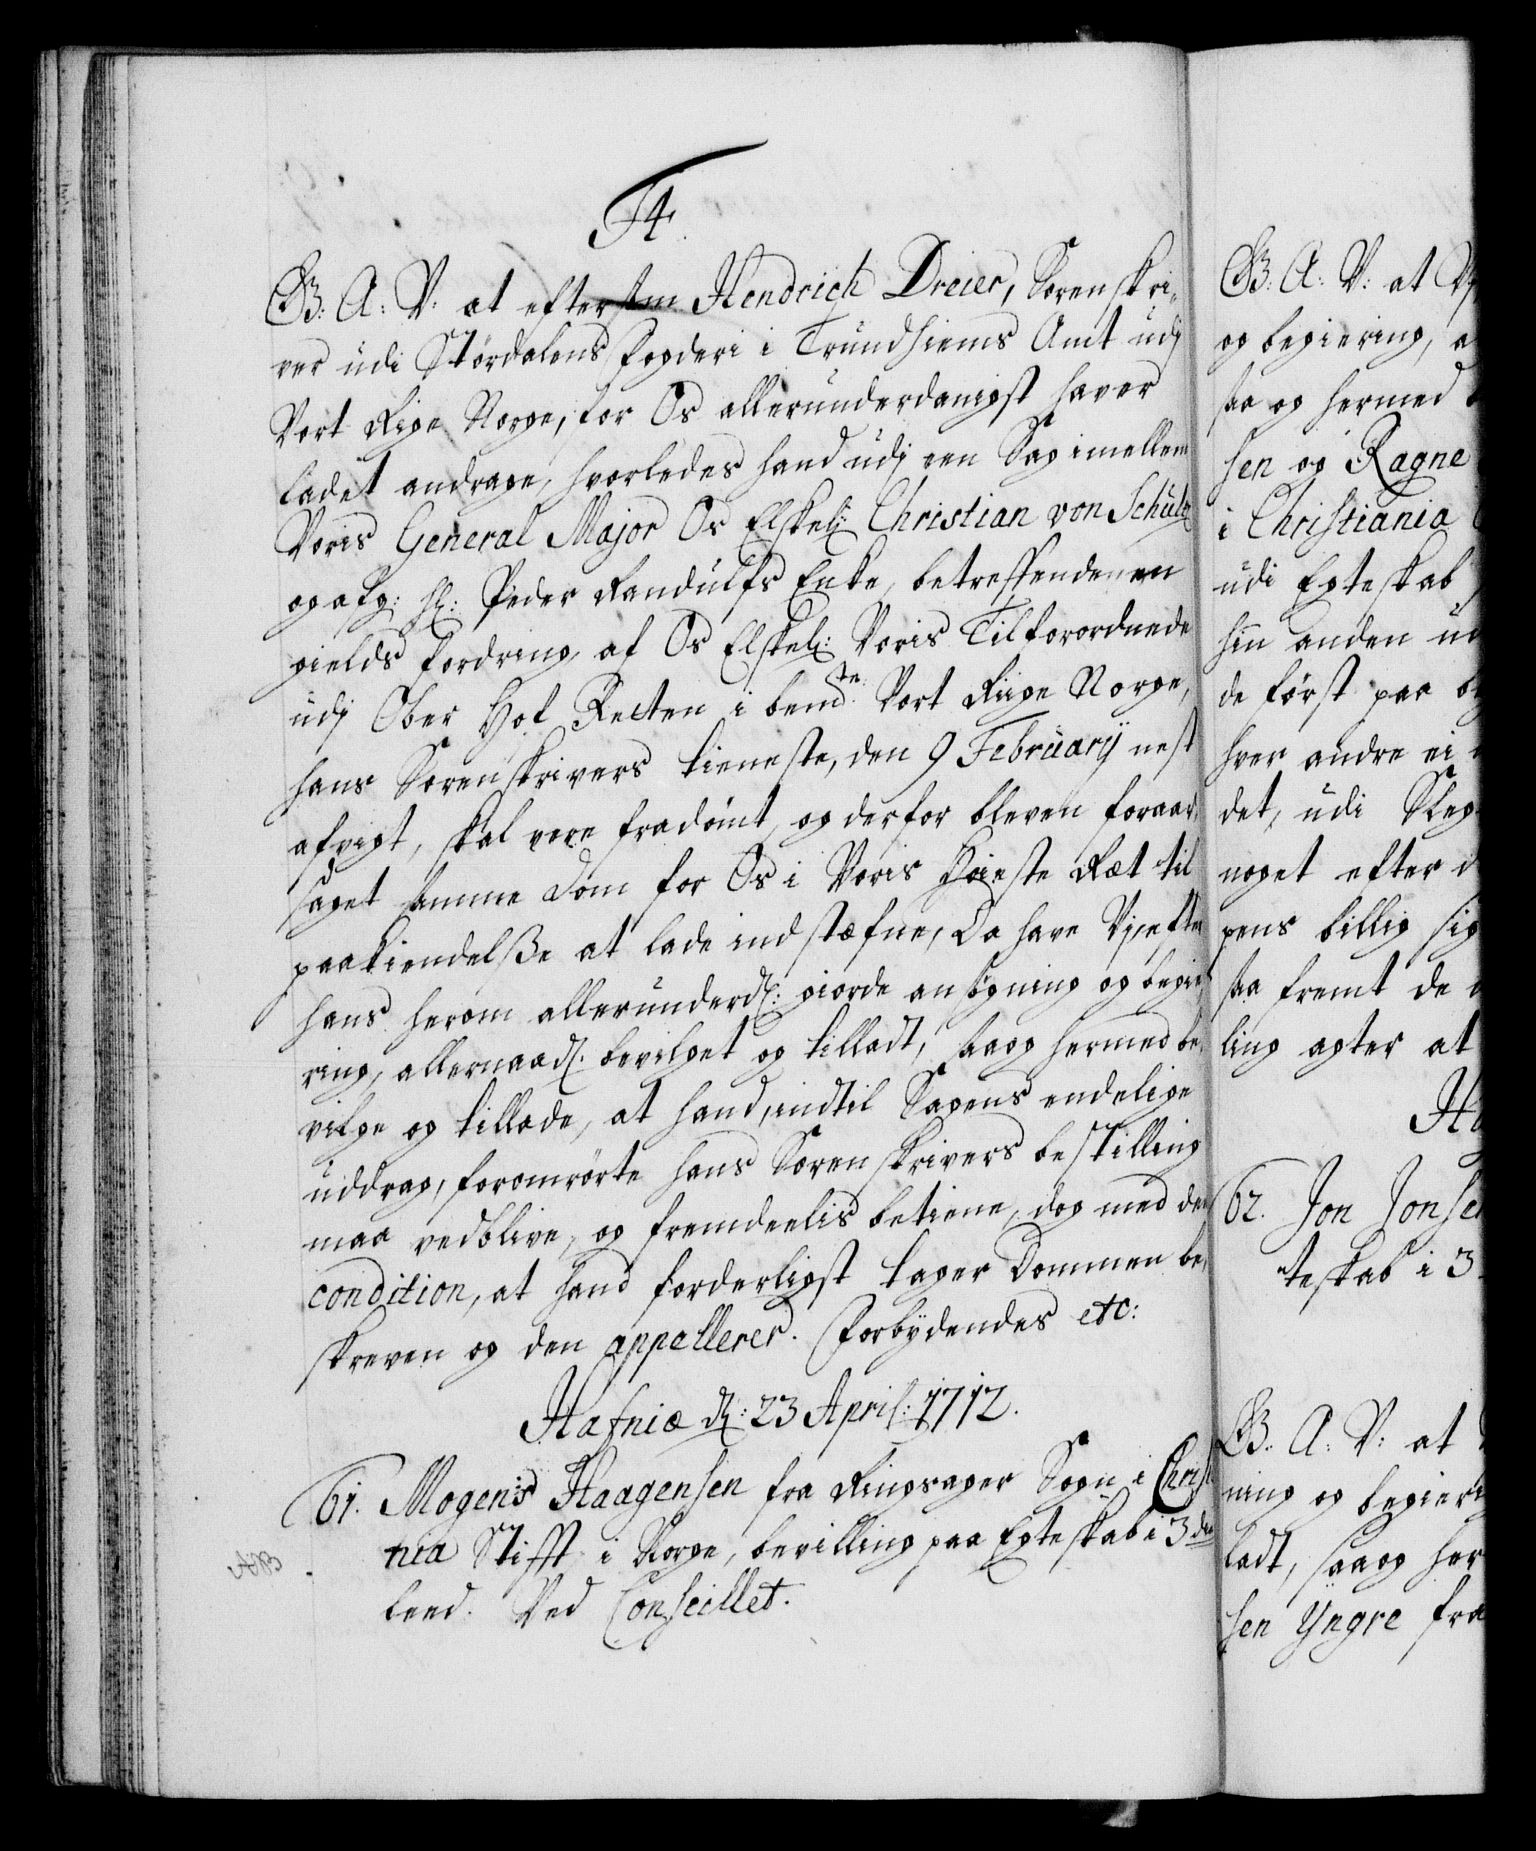 F4.
G: A: V: at eftersom Hendrich Dreier, Sorenskri,
ver udi Stördalens fogderi i Trundhiems Amt udj
Vort Rige Norge, for Os allerunderdanigst haver
ladet andrage, hvorledes hand udj een Sag imellem
Voris General Major Os Elskel: Christian von Schultz
og afg: Hr: Peder Randulfs Enke, betreffende en
gields fordring, af Os Elskel: Voris Tilforordnede
udj Ober Hof Retten i bemdte Vort Rige Norge,
hans Sorenskrivers tieneste, den 9 Februarij nest
afvigt, skal vere fradömt, og derfor bleven foraar,
saget samme Dom for Os i Voris Höieste Ræt til
paakiendelße at lade indstæfne, Da have Vj, efter
hans herom allerunderd: giorde ansögning og begie,
ring, allernaad: bevilget og tilladt, saa og hermed be,
vilge og tillade, at hand, indtil Sagens endelige
uddrag, foromrörte hans Sorenskrivers bestilling
maa vedblive, og fremdeelis betiene, dog med den
condition, at hand forderligst tager Dommen be,
skreven og den appellerer. Forbÿdendes etc:
Hafniæ d: 23 April: 1712.
61. Mogens Haagensen fra Ringsager Sogn i Christ
nia Stifft i Norge, bevilling paa Egteskab i 3die
leed. Ved Conseillet.
G: A: V: at Vj
og begiering, a
saa og hermed
sen og Ragne
i Christiania
udi Egteskab
hin anden ud
de först paa
hver andre ei
det, udi Sleg
noget efter
pens billig sig
saa fremt de
ling agter at
Ha
62. Jon Jonsen
teskab i 3
G: A: V: at
ning og begieri
ladt, saa og her
sen Yngre fra